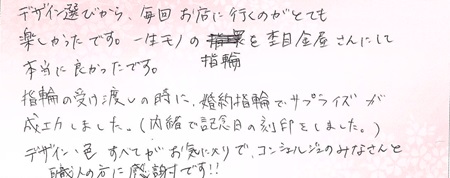 デザイン選びから、毎回お店に行くのがとても
楽しかったです。一生モノの指輪を杢目金屋さんにして
本当に良かったです。
指輪の受け渡しの時に、婚約指輪でサプライズが
成功しました。(内緒で記念日の刻印をしました。)
デザイン、色 すべてがお気に入りで、コンシェルジュのみなさんと
職人の方に感謝です!!